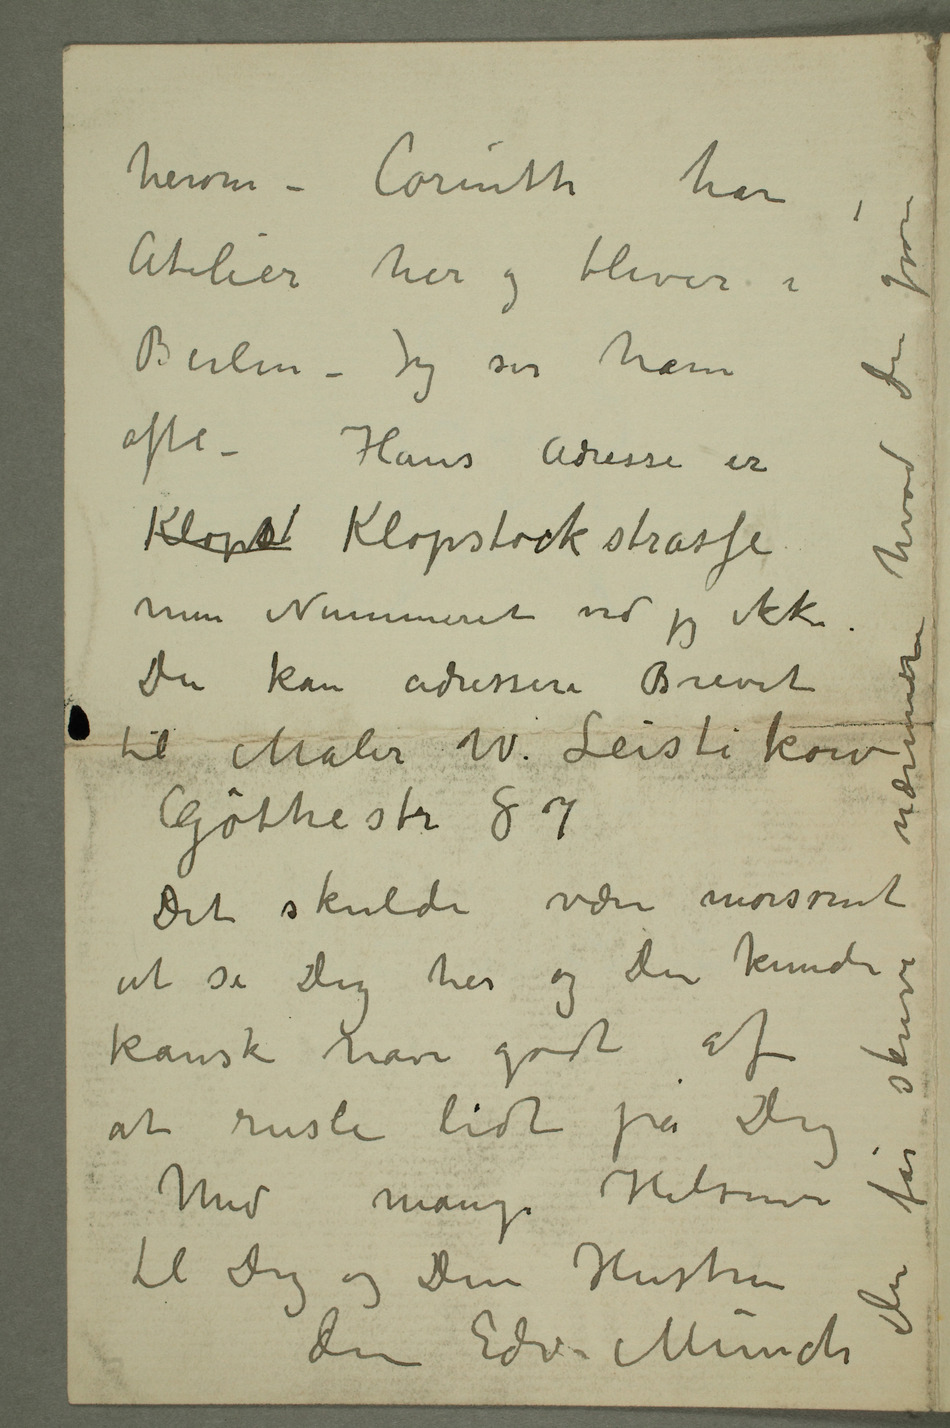 herom – Corinth har
Atelier her og bliver i
Berlin – Jeg ser ham
ofte – Hans Adresse er
Klopst Klopstockstrasse
men Nummeret ved jeg ikke.
Du kan adressere Brevet
til Maler W. Leistikow
Göthestr 87
Det skulde være morsomt
at se Dig her og Du kunde
kanske have godt af
at rusle lidt på Dig
Med mange Hilsener
til Dig og Din Hustru
Din Edv. Munch
Du får skrive nærmere hvad Du gjør